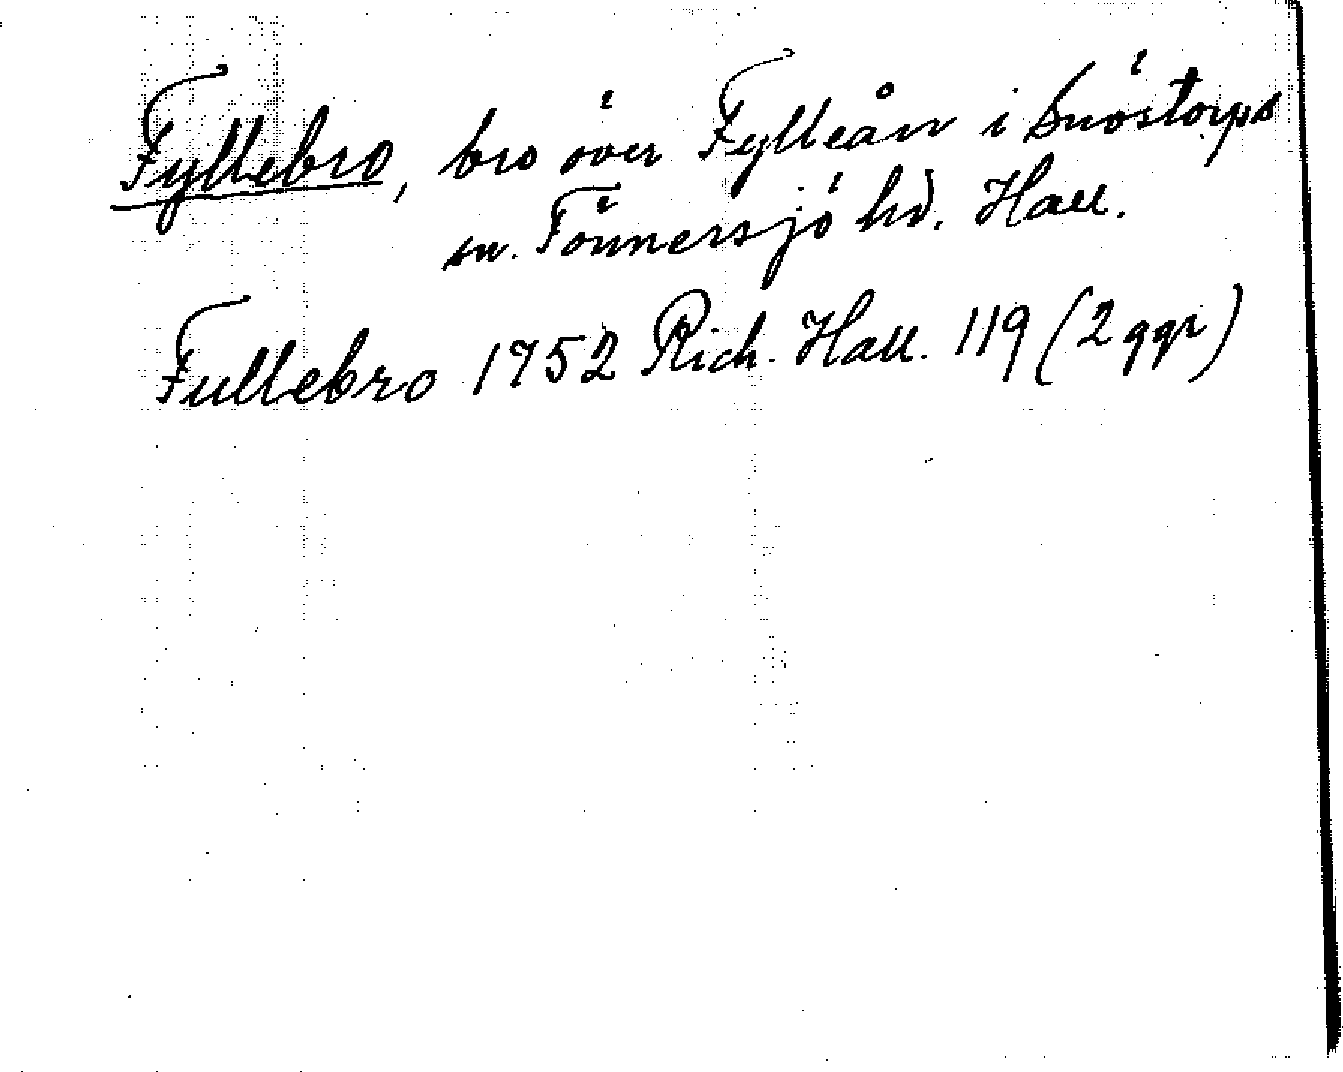 Fyllebro, bro över Fylleån i Snöstorps
sn. Tönnersjö hd. Hall.
Fullebro 1752 Rich. Hall. 119 (2 ggr)